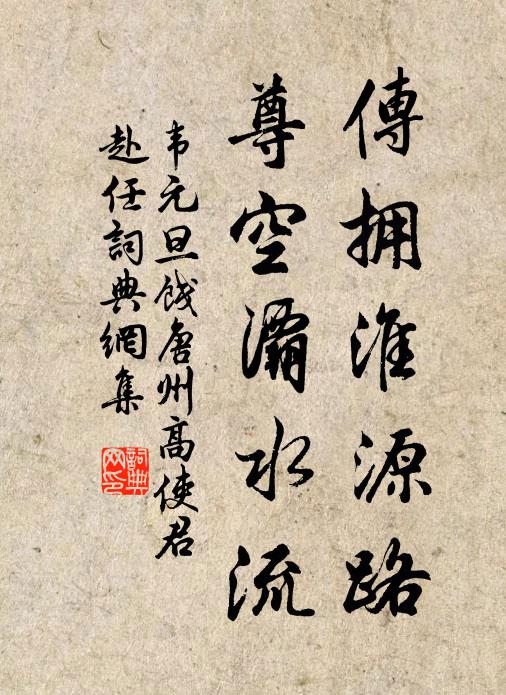 傳擁淮源路
尊空灞水流
韦元旦饯唐州高使君
赴任詞典網集
詞典
网印